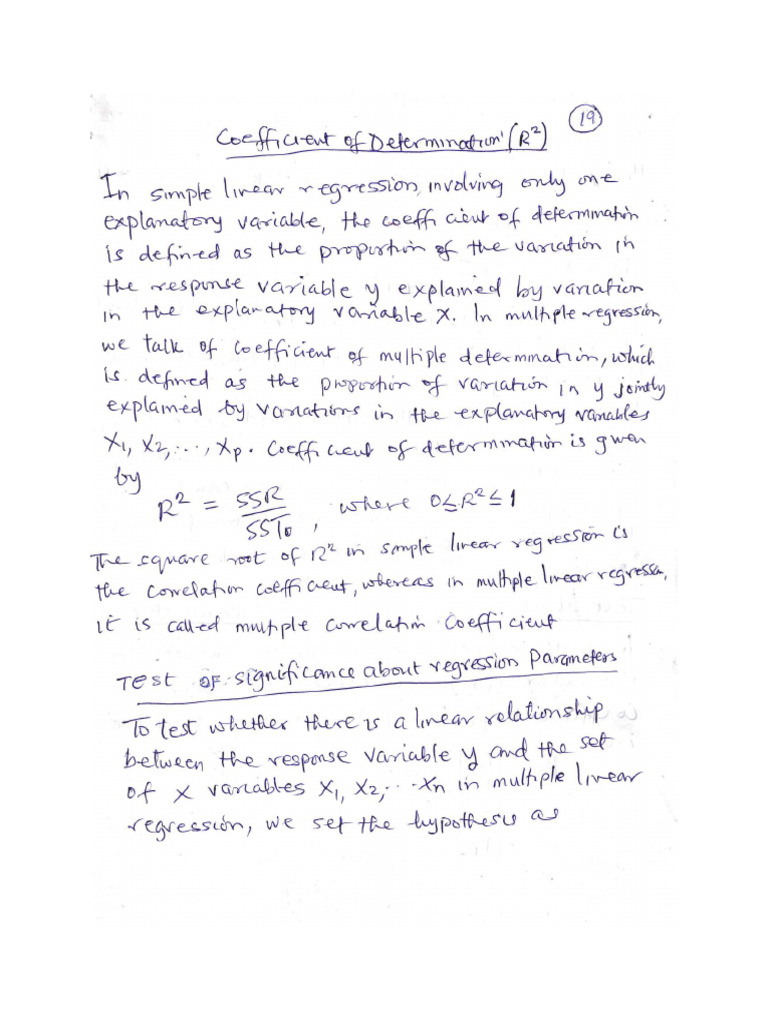 19
Coefficient of Determination (R²)
In simple linear regression, involving only one
explanatory variable, the coefficient of determination
is defined as the proportion of the variation in
the response variable y explained by variation
in the explanatory variable X. In multiple regression,
we talk of coefficient of multiple determination, which
is defined as the proportion of variation in y jointly
explained by variations in the explanatory variables
X₁, X₂, ..., Xp. Coefficient of determination is given
by
R² = SSR / SSTo, where 0≤R²≤1
The square root of R² in simple linear regression is
the correlation coefficient, whereas in multiple linear regression,
it is called multiple correlation coefficient
TEST OF significance about regression Parameters
To test whether there is a linear relationship
between the response variable y and the set
of X variables X₁, X₂, ... Xn in multiple linear
regression, we set the hypothesis as